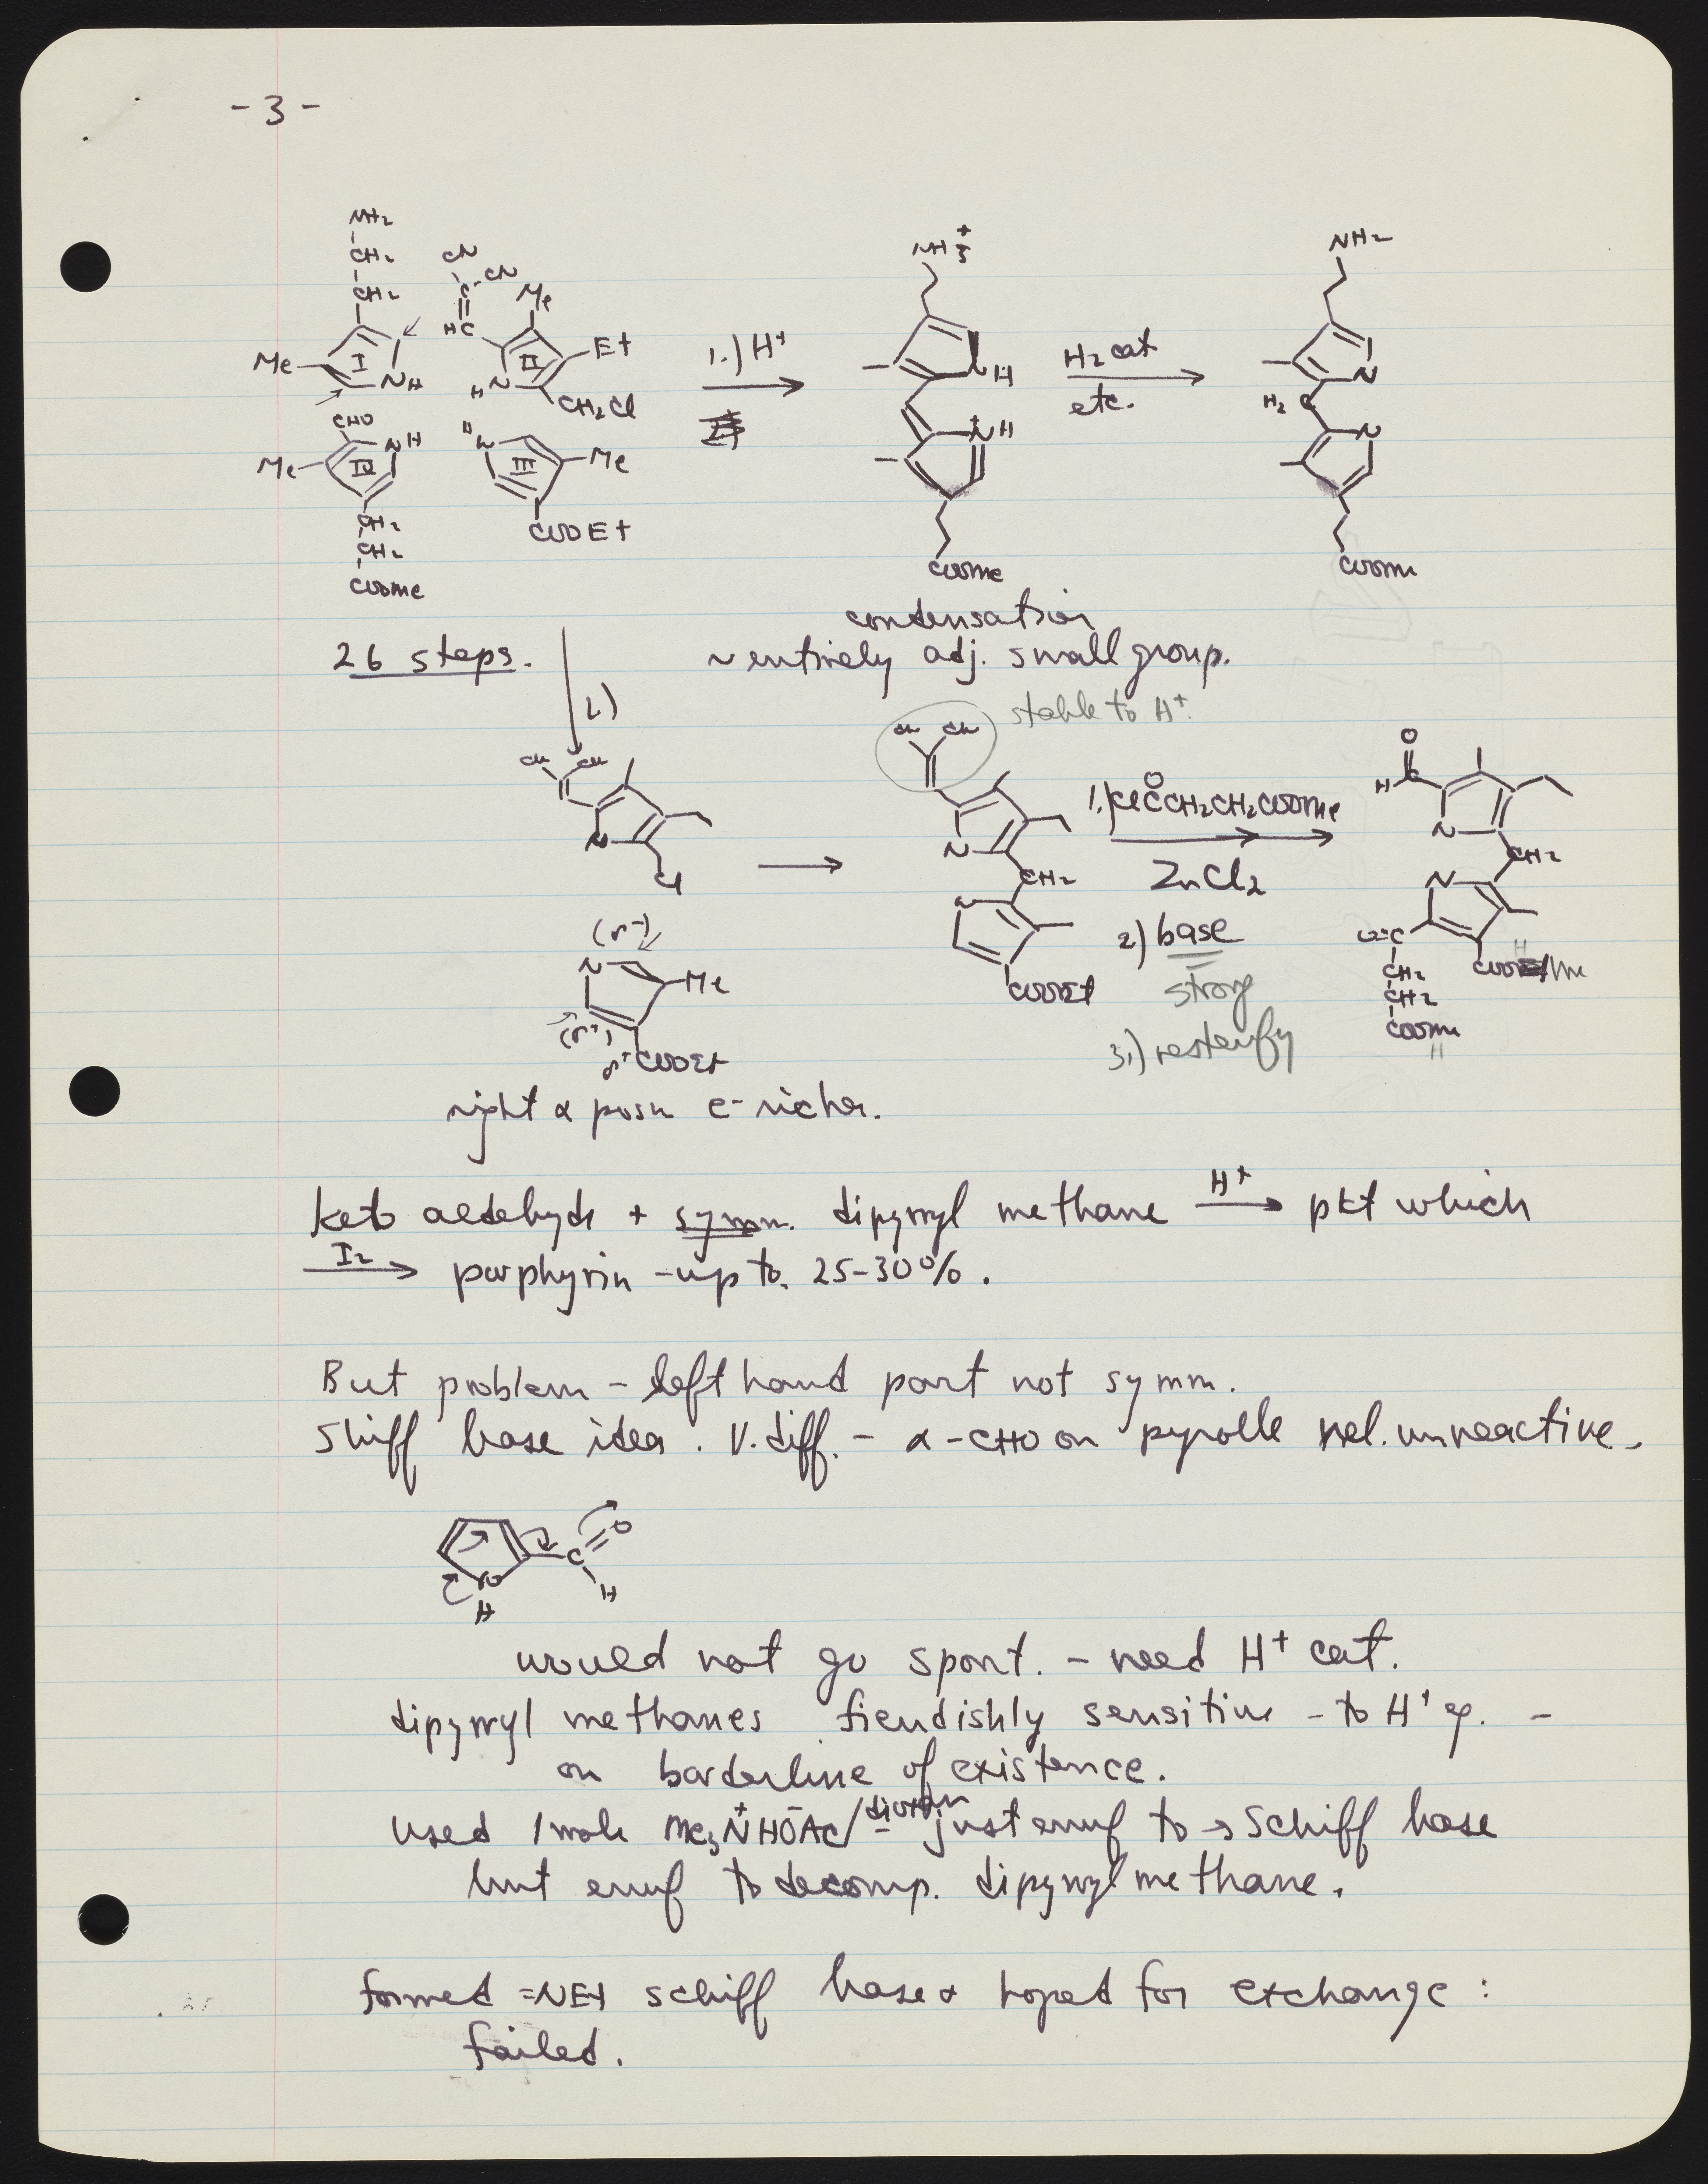 - 3 -
NH2
CH2
CH2
Me
I
NH
CN
CN
C
HC
Me
II
Et
N
H
CH2Cl
1.) H+
NH3+
NH
NH+
COOMe
H2 cat
etc.
NH2
N
H2 C
N
COOMe
CHO
NH
Me
IV
CH2
CH2
COOMe
H
N
III
Me
COOEt
condensation
26 steps.
~ entirely adj. small group.
2.)
stable to H+.
CN CN
N
Cl
CN CN
N
CH2
N
COOEt
1.) ClCCH2CH2COOMe
O
ZnCl2
2.) base
strong
3.) resterify
O
H C
N
CH2
N
O=C
CH2
CH2
COOMe
H
H
COOEt/Me
(δ-)
N
Me
(δ+)
δ+ COOEt
right α posn e- richer.
keto aldehyde + symm. dipyrryl methane H+ → pkt which
I2 → porphyrin - up to 25-30%.
But problem - left hand part not symm.
Shiff base idea. V. diff. - α-CHO on pyrolle rel. unreactive.
C O
N
H
H
would not go spont. - need H+ cat.
dipyrryl methanes fiendishly sensitive - to H+ esp. -
on borderline of existence.
used 1 mole Me3N+HO-Ac/dioxan - just enuf to → Schiff base
but enuf to decomp. dipyrryl methane.
formed =NEt schiff base & hoped for exchange :
failed.